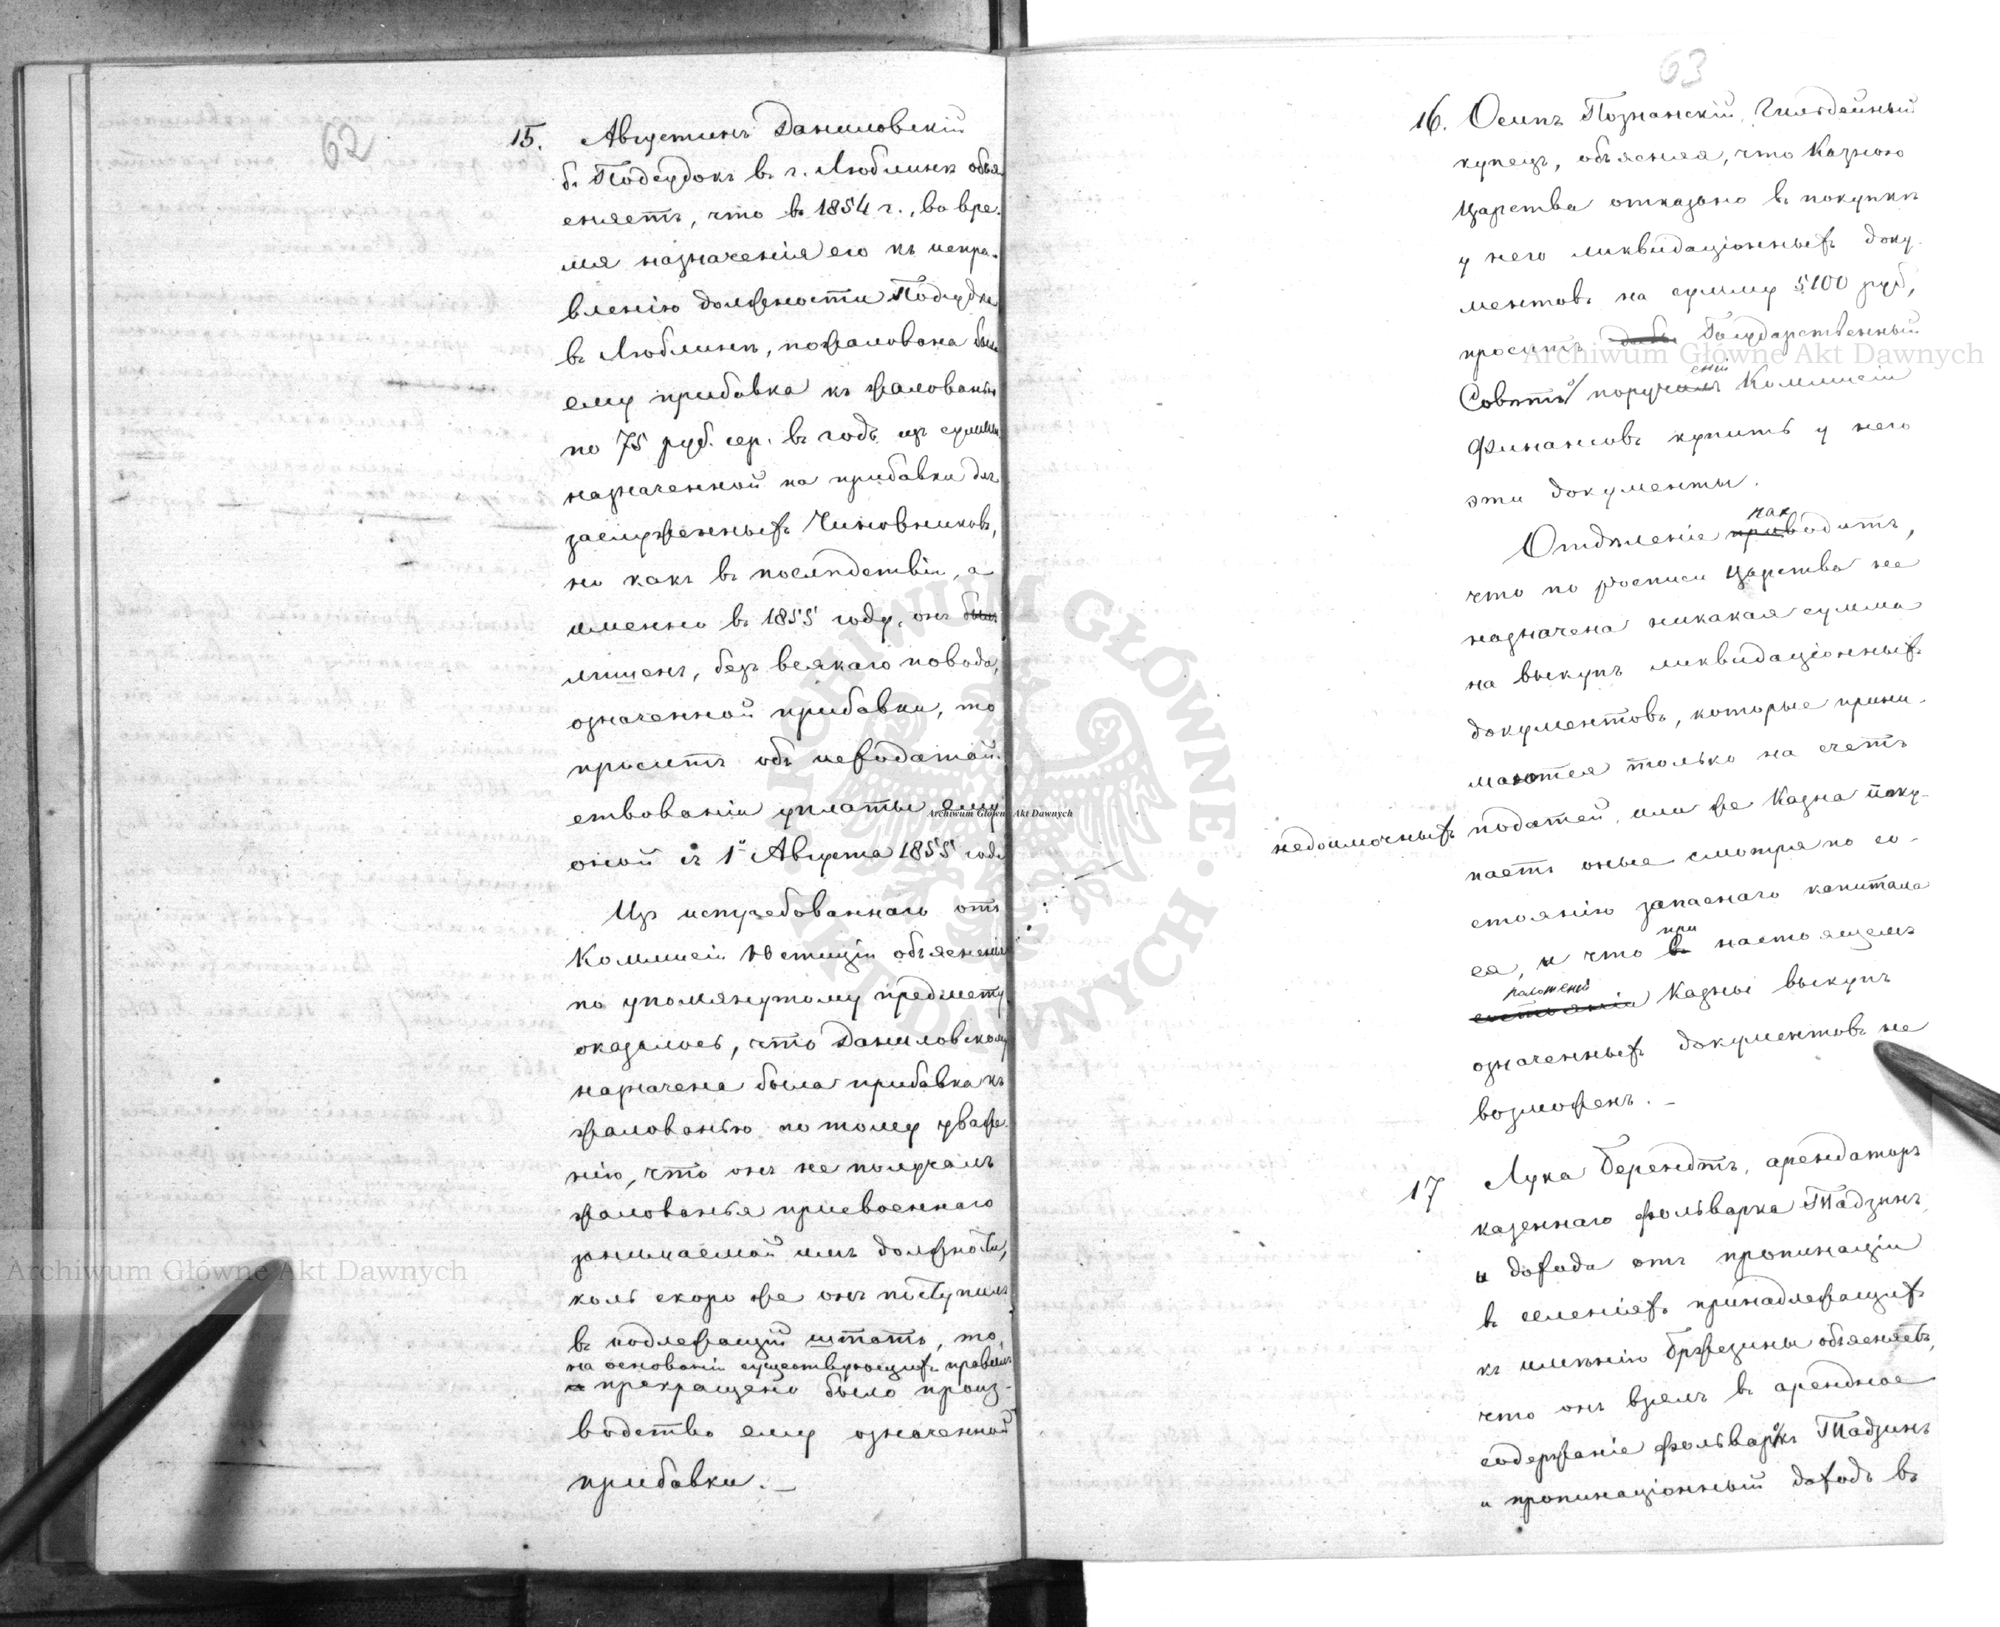 62
15. Августинъ Даниловскій
б. Подсудокъ въ г. Люблинѣ объя-
сняетъ, что въ 1854 г., во вре-
мя назначенія его къ испра-
вленію должности Подсудка
въ Люблинѣ, пожалована была
ему прибавка къ жалованью
по 75 руб. сер. въ годъ изъ суммы
назначенной на прибавки для
заслуженныхъ Чиновниковъ,
но какъ въ послѣдствіи, а
именно въ 1855 году, онъ былъ
лишенъ, безъ всякаго повода,
означенной прибавки, то
проситъ объ исходатай-
ствованіи уплаты ему
оной съ 1го Августа 1855 года
Изъ истребованнаго отъ
Коммисіи Юстиціи объясненія
по упомянутому предмету
оказалось, что Даниловскому
назначена была прибавка къ
жалованью по тому уваже-
нію, что онъ не получалъ
жалованья присвоеннаго
занимаемой имъ должности,
коль скоро же онъ поступилъ
въ подлежащій штатъ, то
на основаніи существующихъ правилъ
прекращено было произ-
водство ему означенной
прибавки. —
63
16. Осипъ Познанскій, Гильдейный
купецъ, объясняя, что Казною
Царства отказано въ покупкѣ
у него ликвидаціонныхъ доку-
ментовъ на сумму 5100 руб,
проситъ дабы Государственный
Совѣтъ поручилъ Коммисіи
еніи
Финансовъ купить у него
эти документы.
нах
Отдѣленіе приводитъ,
что по росписи Царства не
назначена никакая сумма
на выкупъ ликвидаціонныхъ
документовъ, которые прини-
маются только на счетъ
недоимочныхъ податей, или же Казна поку-
паетъ оные смотря по со-
стоянію запаснаго капитала
при
ея, и что въ настоящемъ
положеніи
состояніи Казны выкупъ
означенныхъ документовъ не
возможенъ. —
17 Лука Берендтъ, арендаторъ
казеннаго фольварка Тадзинъ,
и дохода отъ пропинаціи
въ селеніяхъ принадлежащихъ
къ имѣнію Бржезины объясняетъ,
что онъ взялъ въ арендное
содержаніе фольваркъ Тадзинъ
и пропинаціонный доходъ въ
Archiwum Główne Akt Dawnych
Archiwum Główne Akt Dawnych
Archiwum Główne Akt Dawnych
ARCHIWUM GŁÓWNE · AKT DAWNYCH ·